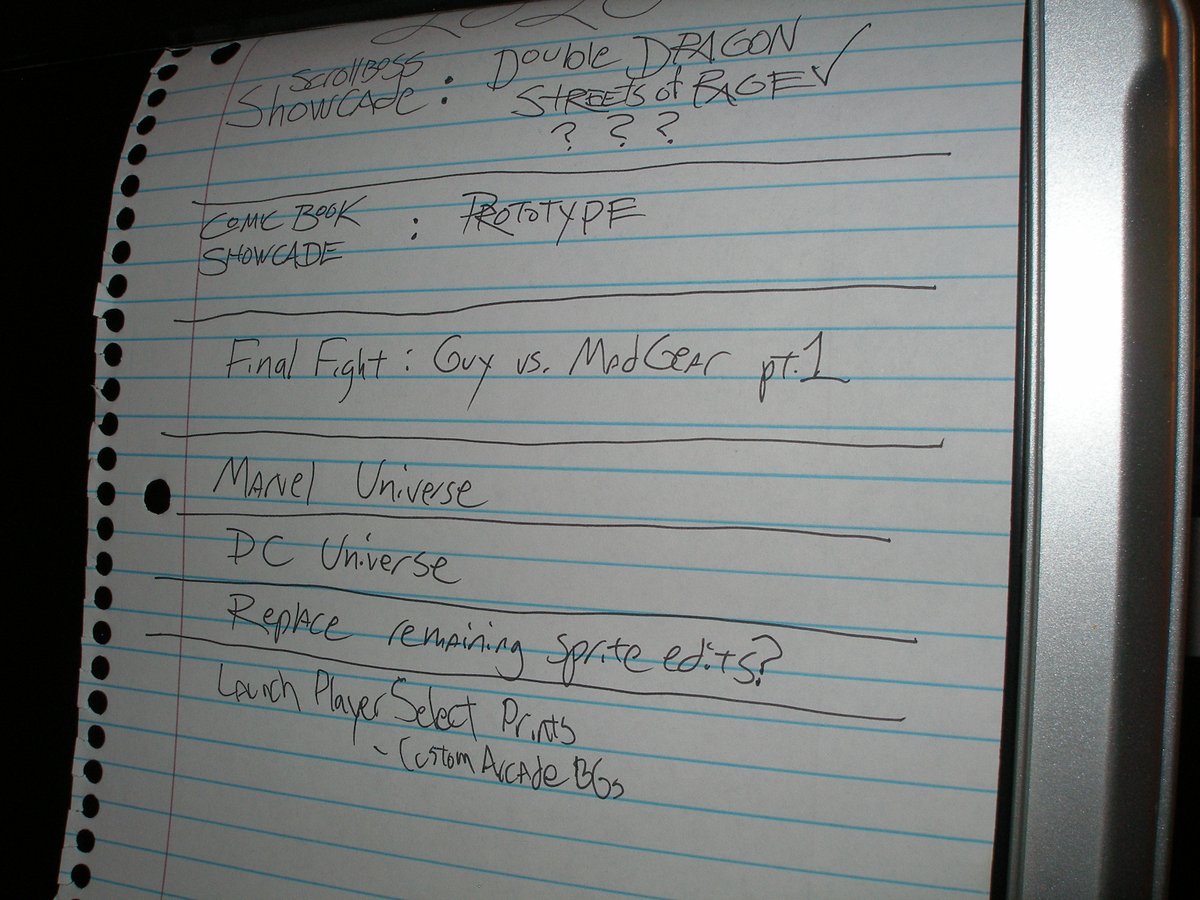 2020
ScrollBoss
Showcade : Double Dragon
Streets of Rage ✓
? ? ?
Comic Book
Showcade : Prototype
Final Fight : Guy vs. Mad Gear pt. 1
Marvel Universe
DC Universe
Replace remaining sprite edits?
Launch Player Select Prints
- Custom Arcade BGs